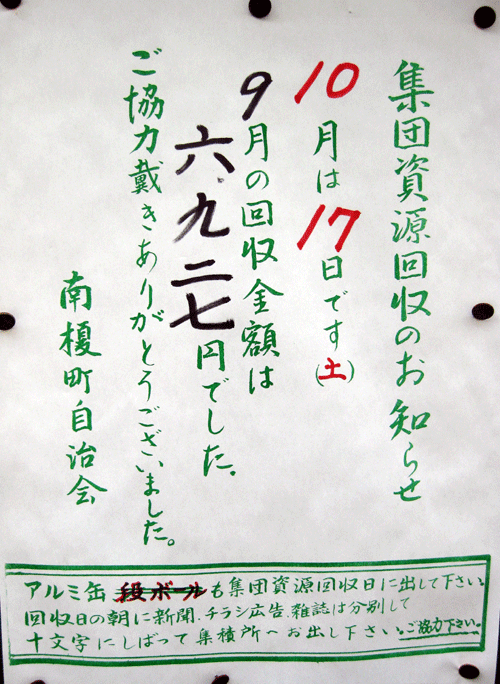 集団資源回収のお知らせ
10月は17日です(土)
9月の回収金額は
六、九二七円でした。
ご協力戴きありがとうございました。
南榎町自治会
アルミ缶 段ボールも集団資源回収日に出して下さい。
回収日の朝に新聞、チラシ広告、雑誌は分別して
十文字にしばって集積所へお出し下さい。ご協力下さい。